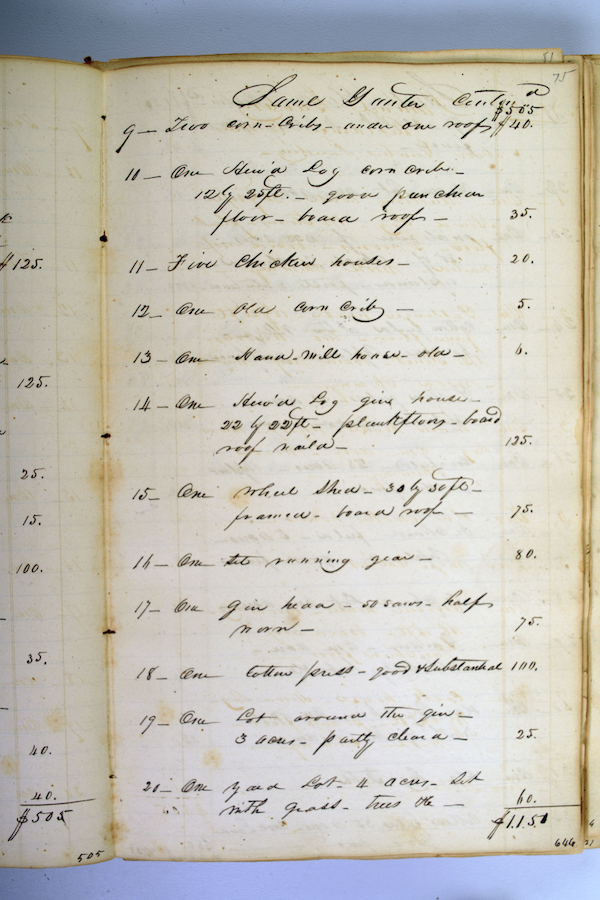 75
Same Gunter Contind
$505
9 — Two corn-Cribs - under one roof $40.
10 — One Hew'd Log corn crib -
12 by 25 ft. - good puncheon
floor - board roof - 35.
11 — Five Chicken houses - 20.
12 — One old corn Crib - 5.
13 — One Hand-mill house - old - 6.
14 — One Hew'd Log gin house -
22 by 22 ft - plank floor - board
roof naild - 125.
15 — One wheel Shed - 30 by 30 ft -
framed - board roof - 75.
16 — One set running gear - 80.
17 — One Gin head - 50 saws - half
worn - 75.
18 — One Cotton press - good & Substantial 100.
19 — One Lot around the gin -
3 acres - partly cleard - 25.
20 — One yard Lot - 4 acres - Set
with grass - trees &c - 60.
$1.151
646
$125.
125.
25.
15.
100.
35.
40.
40.
$505
505